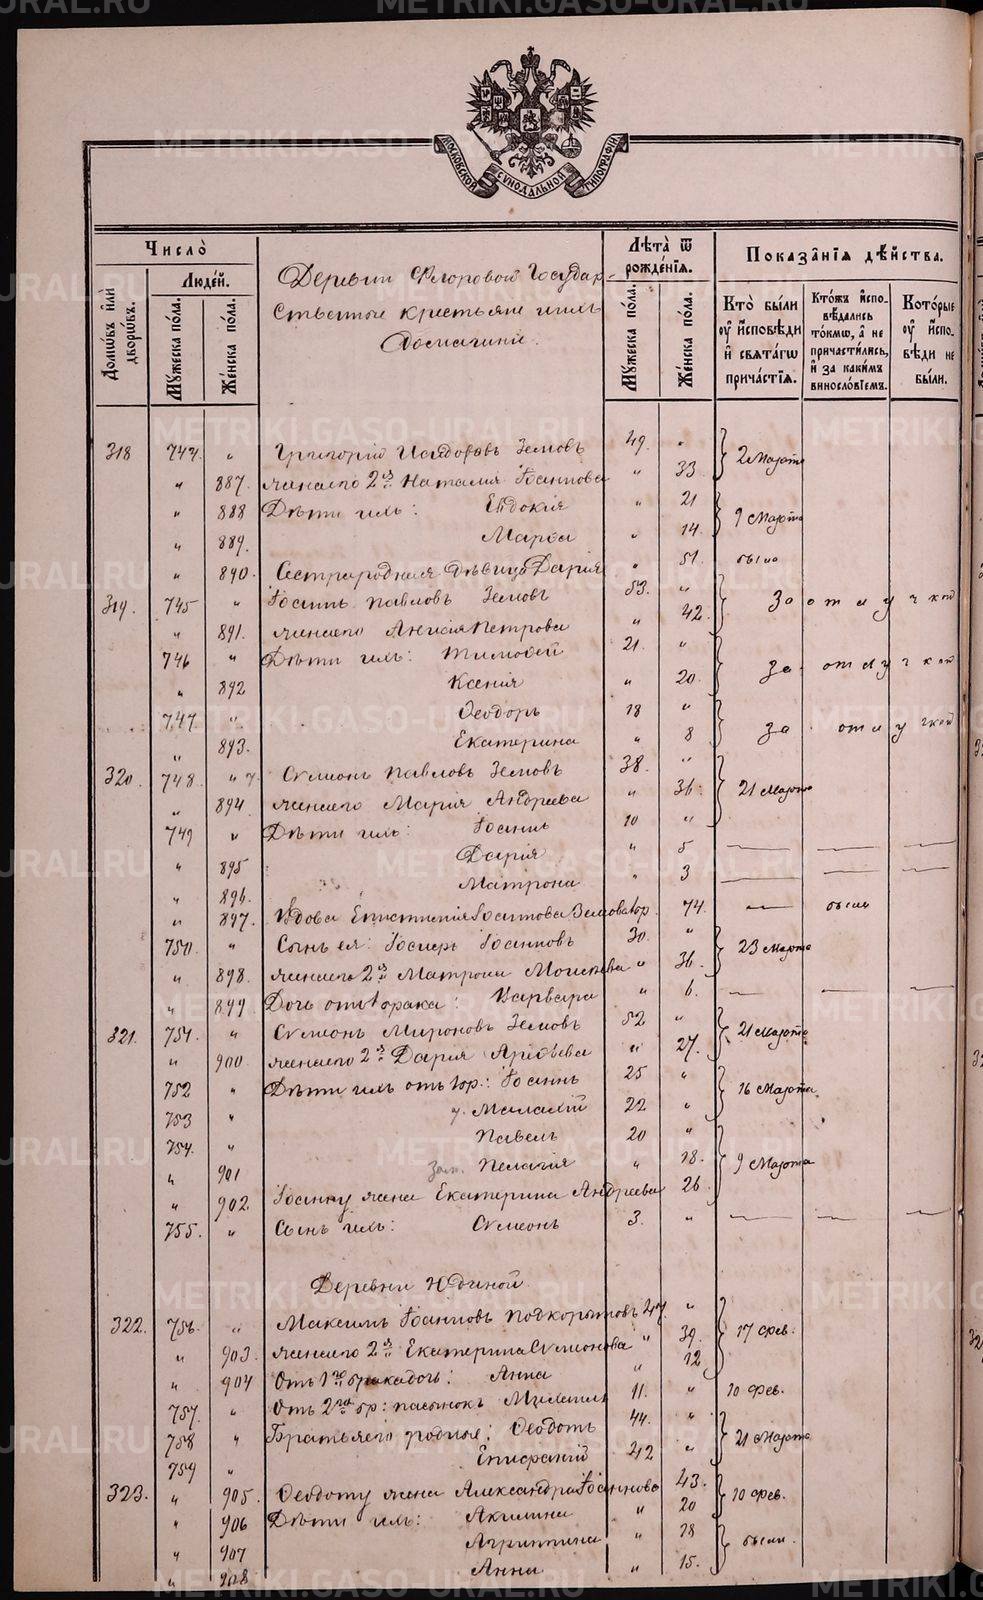 МОСКОВСКОЙ СѴНОДАЛЬНОЙ ТИПОГРАФІИ
Число̀
Людей.
Домѡвъ и҆лѝ дворѡвъ.
Мꙋжеска по́ла.
Же́нска по́ла.
Деревни Флоровой Государ-
ственные крестьяне и ихъ
Домашніе.
Лѣта̀ ѿ рожде́нїѧ.
Мꙋжеска по́ла.
Же́нска по́ла.
Показа̑нїѧ дѣ́йства.
Кто̀ бы́ли оу҆ и҆сповѣди и҆ свѧта́гѡ прича́стїѧ.
Кто́жъ и҆спо-вѣдались то́кмѡ, а҆ не причасти́лись, и҆ за каки́мъ винослові́емъ.
Кото́рые оу҆ и҆спо-вѣди не бы́ли.
318 744. " Григорій Исидоровъ Земовъ 49. " 2 Марта
" 887. жена его 2я Наталія Іоаннова " 33.
" 888 Дѣти ихъ: Евдокія " 21 9 Марта
" 889. Марѳа " 14.
" 890. Сестра родная дѣвица Дарія " 51. были
319. 745 " Іоаннъ Павловъ Земовъ 53. " За отлучкой
" 891. жена его Анисія Петрова " 42.
746 " Дѣти ихъ: Тимоѳей 21. " За отлучкой
" 892 Ксенія " 20.
747 " Ѳеодоръ 18 " За отлучкой
" 893. Екатерина " 8
320. 748. " Сѵмеонъ Павловъ Земовъ 38. " 21 Марта
" 894. жена его Марія Андреева " 36.
749 " Дѣти ихъ: Іоаннъ 10 "
" 895 Дарія " 5
" 896. Матрона " 3
" 897. Вдова Епистимія Іоаннова Земова " 74. были
750. " Сынъ ея: Іосифъ Іоанновъ 30. " 23 Марта
" 898. жена его 2я Матрона Моисеева " 36.
" 899 Дочь отъ 1 брака: Варвара " 6.
321. 751. " Сѵмеонъ Мироновъ Земовъ 52 " 21 Марта
" 900 жена его 2я Дарія " 27.
752 " Дѣти ихъ отъ 1 бр.: Іоаннъ 25 " 16 Марта
753 " у. Малахій 22 "
754. " Павелъ 20 " 9 Марта
" 901 зам. Пелагія " 18.
" 902. Іоанну жена Екатерина Андреева 26
755. " Сынъ ихъ: Сѵмеонъ 3. "
Деревни Юдиной
322. 756. " Максимъ Іоанновъ Подкорытовъ 47. " 17 Фев.
" 903. жена его 2я Екатерина Сѵмеонова " 39.
" 904 Отъ 1го брака дочь: Анна " 12
757. " Отъ 2го бр: пасынокъ Михаилъ 11. " 10 Фев.
758 " Братья его родные: Ѳеодотъ 44. " 21 Марта
759 " Епифаній 42 "
323. " 905. Ѳеодоту жена Александра Іоаннова 43. 10 Фев.
" 906 Дѣти ихъ: Акилина " 20
" 907 Агриппина " 18 были.
" 908 Анна " 15.
METRIKI.GASO-URAL.RU